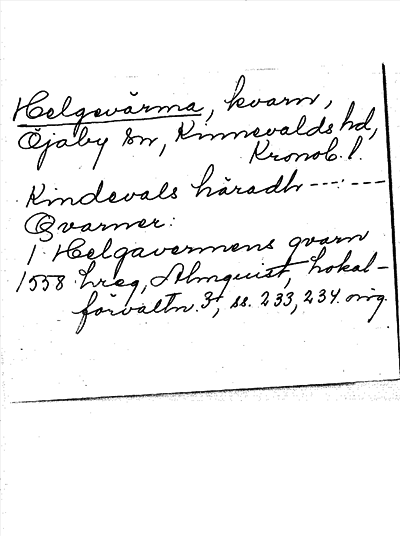 Helgevärma, kvarn,
Öjaby sn, Kinnevalds hd,
Kronob. l.
Kindevals häradh --------
Qvarner:
1 Helgavermens qvarn
1558 hreg, Almquist, Lokal-
förvaltn. 3, ss. 233, 234. orig.